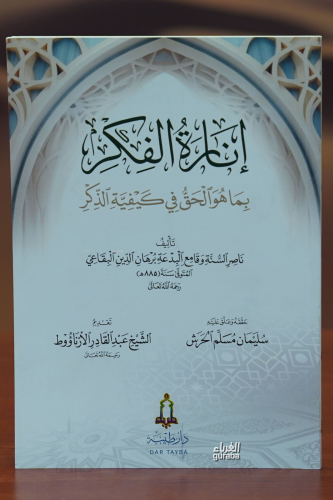 إنارة الفكر
بما هو الحق في كيفية الذكر
تأليف
ناصر السنة وقامع البدعة برهان الدين البقاعي
المتوفى سنة (٨٨٥هـ)
رحمه الله تعالى
حققه وعلق عليه
سليمان مسلم الحرش
تقديم
الشيخ عبد القادر الأرناؤوط
رحمه الله تعالى
دار طيبة
DAR TAYBA
الغرباء
guraba